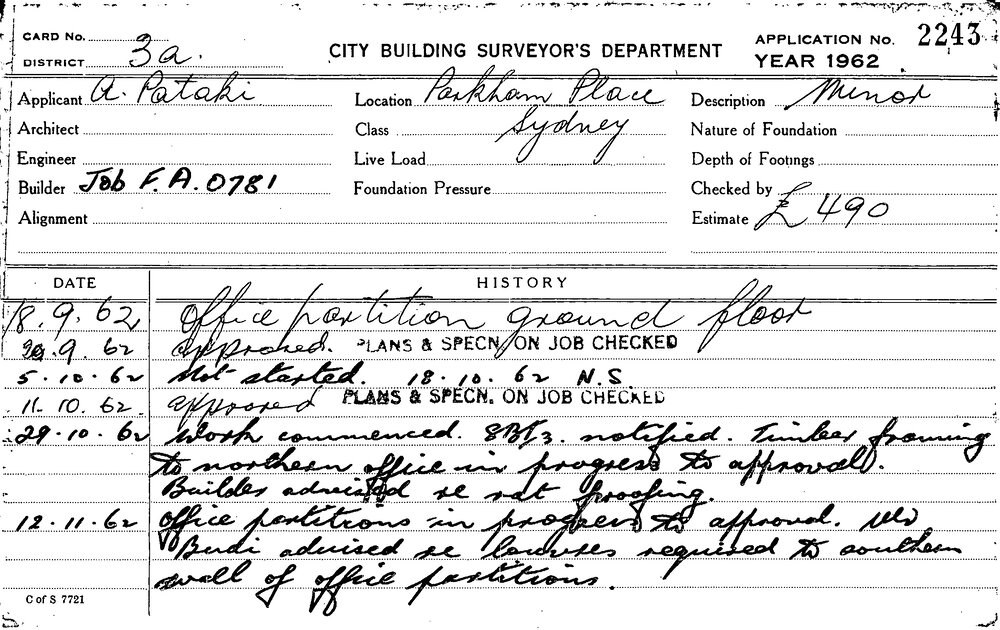 CARD No.
DISTRICT 3a.
CITY BUILDING SURVEYOR'S DEPARTMENT
APPLICATION No. 2243
YEAR 1962
Applicant A. Pataki
Location Parkham Place
Description Minor
Architect
Class Sydney
Nature of Foundation
Engineer
Live Load
Depth of Footings
Builder Job F.A. 0781
Foundation Pressure
Checked by
Alignment
Estimate £ 490
DATE HISTORY
18.9.62 Office partition ground floor
20.9.62 approved. PLANS & SPECN. ON JOB CHECKED
5.10.62 Not started. 18.10.62 N.S.
11.10.62. approved PLANS & SPECN. ON JOB CHECKED
29.10.62 Work commenced. notified. Timber framing
to northern office in progress to approval.
Builder advised re rat proofing.
12.11.62 Office partitions in progress to approval. Mr
advised re louvres required to southern
wall of office partitions.
C of S 7721